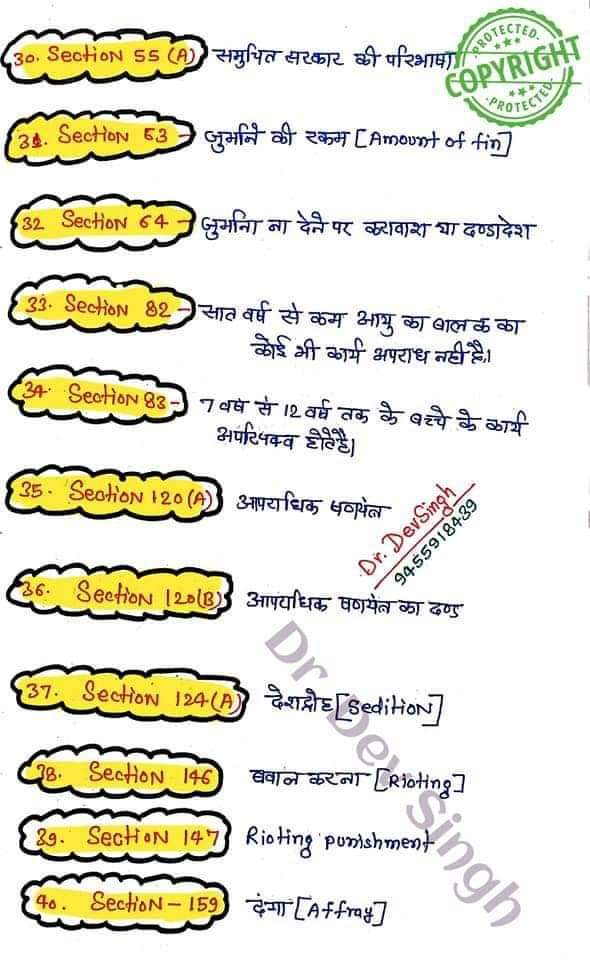 30. Section 55 (A) समुचित सरकार की परिभाषा
PROTECTED
COPYRIGHT
PROTECTED
31. Section 63 – जुर्माने की रकम [Amount of fin]
32 Section 64 – जुर्माना ना देने पर कारावास या दण्डादेश
33. Section 82 – सात वर्ष से कम आयु का बालक का
कोई भी कार्य अपराध नही है।
34. Section 83 – 7 वर्ष से 12 वर्ष तक के बच्चे के कार्य
अपरिपक्व होते है।
35. Section 120 (A) आपराधिक षणयंत्र
Dr. Dev Singh
9455918439
36. Section 120(B) आपराधिक षणयंत्र का दण्ड
37. Section 124(A) देशद्रोह [Sedition]
38. Section 146 बवाल करना [Rioting]
39. Section 147 Rioting punishment
40. Section – 159 दंगा [Affray]
Dr Dev Singh